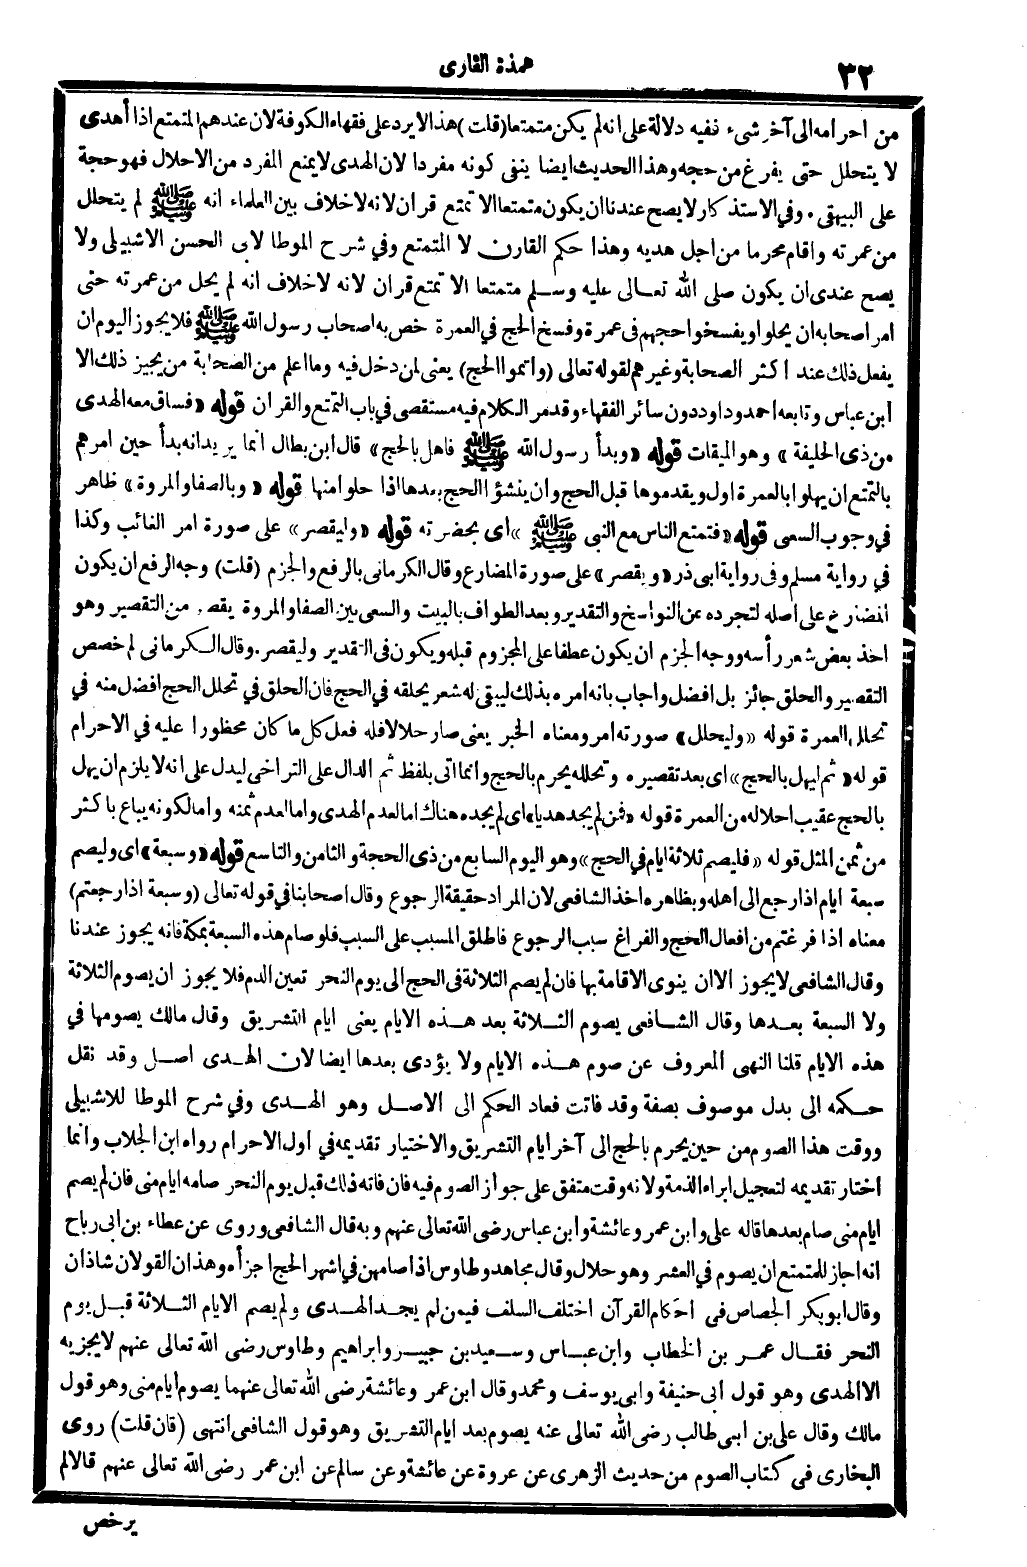 ٣٢
عمدة القارى
من احرامه الى آخر شىء ففيه دلالة على انه لم يكن متمتعا (قلت) هذا لا يرد على فقهاء الكوفة لان عندهم المتمتع اذا أهدى
لا يتحلل حتى يفرغ من حجه وهذا الحديث ايضا ينفى كونه مفردا لان الهدى لا يمنع المفرد من الاحلال فهو حجة
على البيهقى . وفي الاستذكار لا يصح عندنا ان يكون متمتعا الا تمتع قران لانه لاخلاف بين العلماء انه ﷺ لم يتحلل
من عمرته واقام محرما من اجل هديه وهذا حكم القارن لا المتمتع وفي شرح الموطا لابى الحسن الاشبيلى ولا
يصح عندى ان يكون صلى الله تعالى عليه وسلم متمتعا الا تمتع قران لانه لاخلاف انه لم يحل من عمرته حتى
امر اصحابه ان يحلوا ويفسخوا حجهم فى عمرة وفسخ الحج في العمرة خص به اصحاب رسول الله ﷺ فلا يجوز اليوم ان
يفعل ذلك عند اكثر الصحابة وغيرهم لقوله تعالى (واتموا الحج) يعنى لمن دخل فيه وما اعلم من الصحابة من يجيز ذلك الا
ابن عباس وتابعه احمد وداود دون سائر الفقهاء وقد مر الكلام فيه مستقصى في باب التمتع والقران قوله «فساق معه الهدى
من ذى الحليفة» وهو الميقات قوله «وبدأ رسول الله ﷺ فاهل بالحج» قال ابن بطال انما يريد انه بدأ حين امرهم
بالتمتع ان يهلوا بالعمرة اول ويقدموها قبل الحج وان ينشؤا الحج بعدها اذا حلوا منها قوله «وبالصفا والمروة» ظاهر
في وجوب السعى قوله «فتمتع الناس مع النبى ﷺ» أى بحضرته قوله «وليقصر» على صورة امر الغائب وكذا
في رواية مسلم وفى رواية ابى ذر «ويقصر» على صورة المضارع وقال الكرمانى بالرفع والجزم (قلت) وجه الرفع ان يكون
المضارع على اصله لتجرده عن النواسخ والتقدير وبعد الطواف بالبيت والسعى بين الصفا والمروة يقصر من التقصير وهو
اخذ بعض شعر رأسه ووجه الجزم ان يكون عطفا على المجزوم قبله ويكون فى التقدير وليقصر. وقال الكرمانى لم خصص
التقصير والحلق جائز بل افضل واجاب بانه امره بذلك ليبقى له شعر يحلقه في الحج فان الحلق في تحلل الحج افضل منه في
تحلل العمرة قوله «وليحلل» صورته امر ومعناه الخبر يعنى صار حلالا فله فعل كل ما كان محظورا عليه في الاحرام
قوله «ثم ليهل بالحج» اى بعد تقصيره وتحلله يحرم بالحج وانما اتى بلفظ ثم الدال على التراخى ليدل على انه لا يلزم ان يهل
بالحج عقيب احلاله من العمرة قوله «فمن لم يجد هديا» اى لم يجده هناك اما لعدم الهدى واما لعدم ثمنه واما لكونه يباع باكثر
من ثمن المثل قوله «فليصم ثلاثة ايام في الحج» وهو اليوم السابع من ذى الحجة والثامن والتاسع قوله «وسبعة» اى وليصم
سبعة ايام اذا رجع الى اهله وبظاهره اخذ الشافعى لان المراد حقيقة الرجوع وقال اصحابنا في قوله تعالى (وسبعة اذا رجعتم)
معناه اذا فرغتم من افعال الحج والفراغ سبب الرجوع فاطلق المسبب على السبب فلو صام هذه السبعة بمكة فانه يجوز عندنا
وقال الشافعى لا يجوز الا ان ينوى الاقامة بها فان لم يصم الثلاثة فى الحج الى يوم النحر تعين الدم فلا يجوز ان يصوم الثلاثة
ولا السبعة بعدها وقال الشافعى يصوم الثلاثة بعد هذه الايام يعنى ايام التشريق وقال مالك يصومها في
هذه الايام قلنا النهى المعروف عن صوم هذه الايام ولا يؤدى بعدها ايضا لان الهدى اصل وقد نقل
حكمه الى بدل موصوف بصفة وقد فاتت فعاد الحكم الى الاصل وهو الهدى وفي شرح الموطا للاشبيلى
ووقت هذا الصوم من حين يحرم بالحج الى آخر ايام التشريق والاختيار تقديمه في اول الاحرام رواه ابن الجلاب وانما
اختار تقديمه لتعجيل ابراء الذمة ولانه وقت متفق على جواز الصوم فيه فان فاته ذلك قبل يوم النحر صامه ايام منى فان لم يصم
ايام منى صام بعدها قاله على وابن عمر وعائشة وابن عباس رضى الله تعالى عنهم وبه قال الشافعى وروى عن عطاء بن ابى رباح
انه اجاز للمتمتع ان يصوم في العشر وهو حلال وقال مجاهد وطاوس اذا صامهن في اشهر الحج اجزأه وهذان القولان شاذان
وقال ابو بكر الجصاص فى احكام القرآن اختلف السلف فيمن لم يجد الهدى ولم يصم الايام الثلاثة قبل يوم
النحر فقال عمر بن الخطاب وابن عباس وسعيد بن جبير وابراهيم وطاوس رضى الله تعالى عنهم لا يجزيه
الا الهدى وهو قول ابى حنيفة وابى يوسف ومحمد وقال ابن عمر وعائشة رضى الله تعالى عنهما يصوم ايام منى وهو قول
مالك وقال على بن ابى طالب رضى الله تعالى عنه يصوم بعد ايام التشريق وهو قول الشافعى انتهى (فان قلت) روى
البخارى فى كتاب الصوم من حديث الزهرى عن عروة عن عائشة وعن سالم عن ابن عمر رضى الله تعالى عنهم قالا لم
يرخص